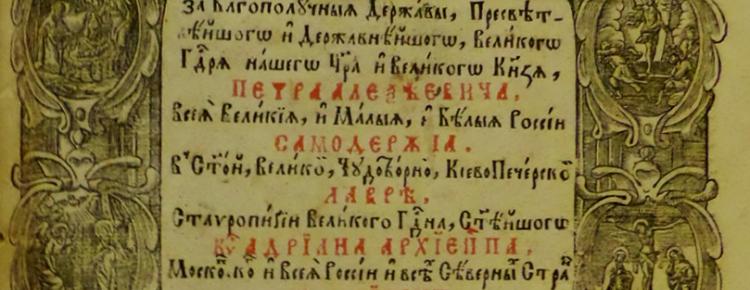 За Благополучныя Державы, Пресвѣт-
лѣйшогѡ и҆ Державнѣйшогѡ, Великогѡ
Гдⷭ҇рѧ нашегѡ Цр҃ѧ и҆ Великогѡ Кнз҃ѧ,
ПЕТРА АЛЕѮЇЕВИЧА,
Всеѧ̀ Вели́кїѧ, и҆ Ма́лыѧ, и҆ Бѣ́лыѧ Россі́и
САМОДЕРЖЦА.
В̾ Ст҃ой, Велико́й, Чꙋдотворно́й, КїевоПечерско́й
ЛАВРѢ,
Ставропигїи Великого Гдⷭ҇на, Ст҃ѣйшогѡ
Кѵ́р АДРЇАНА АРХЇЕПⷭ҇ПА,
Моско́вⷭ҇кого и҆ Всеѧ̀ Россі́и и҆ всѣⷯ Сѣверныⷯ Страⷩ